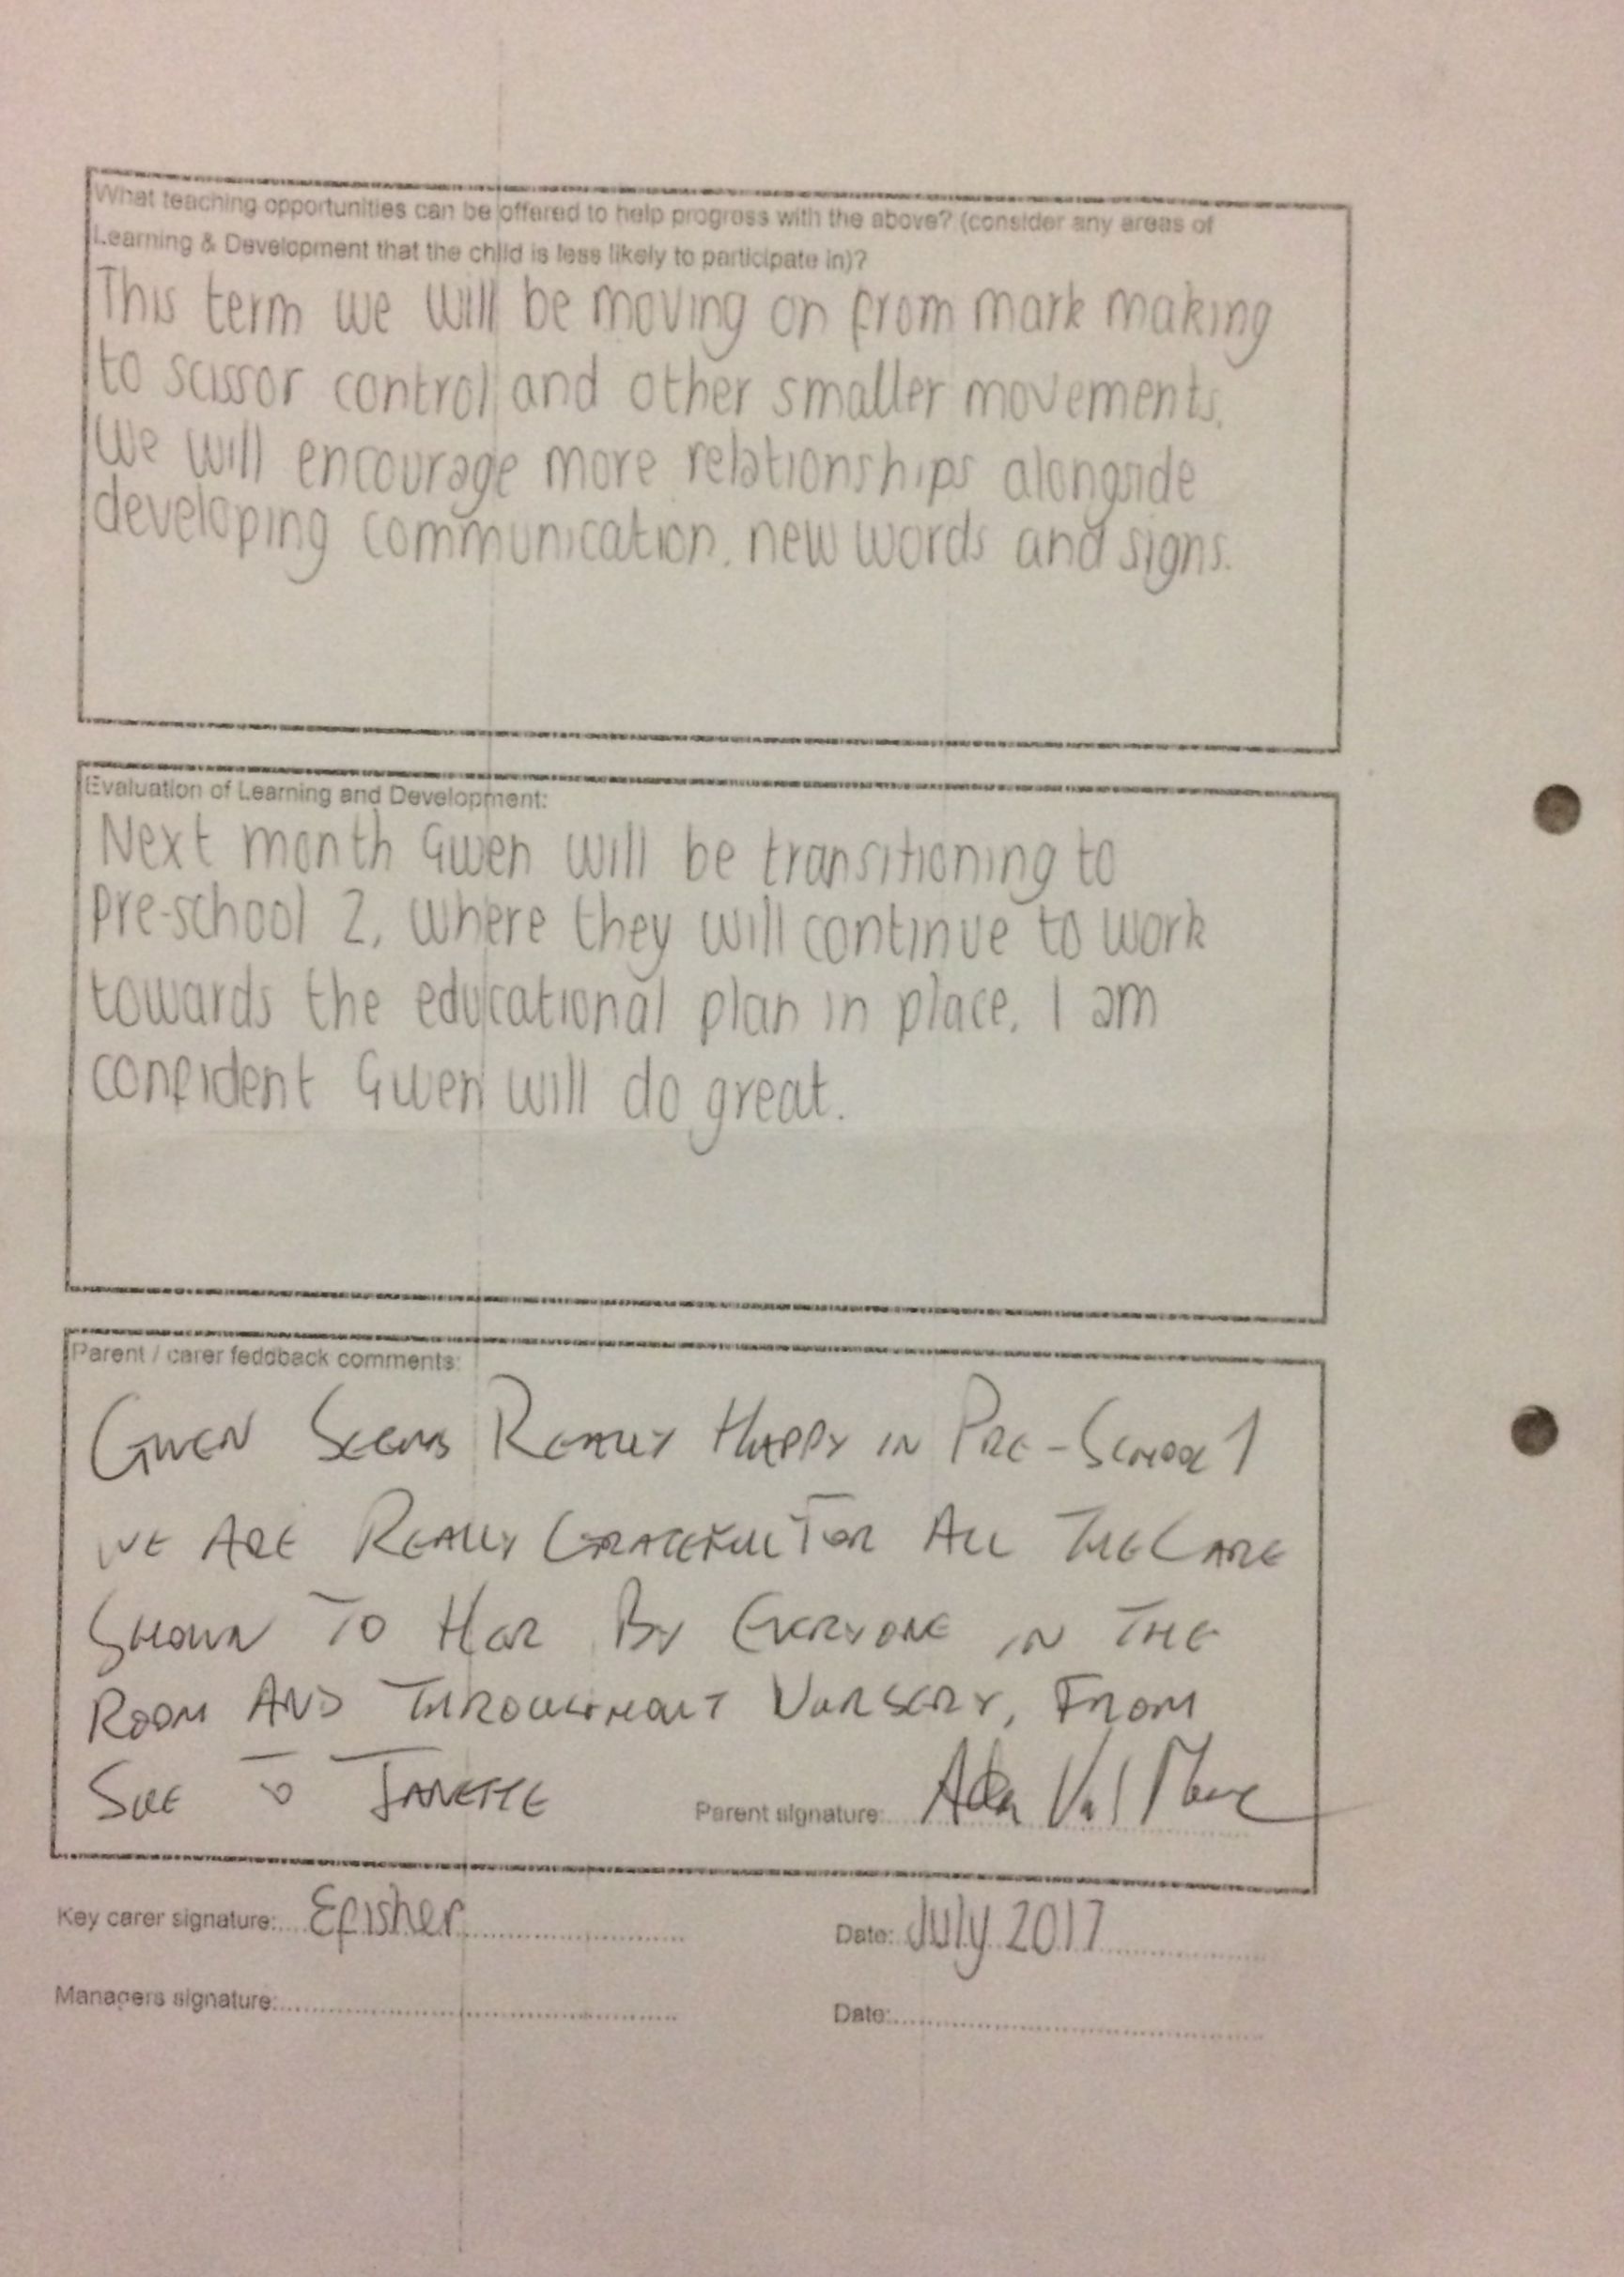 What teaching opportunities can be offered to help progress with the above? (consider any areas of
Learning & Development that the child is less likely to participate in)?
This term we will be moving on from mark making
to scissor control and other smaller movements.
We will encourage more relationships alongside
developing communication, new words and signs.
Evaluation of Learning and Development:
Next month Gwen will be transitioning to
pre-school 2, where they will continue to work
towards the educational plan in place. I am
confident Gwen will do great.
Parent / carer feddback comments:
GWEN SEEMS REALLY HAPPY IN PRE-SCHOOL 1
WE ARE REALLY GRATEFUL FOR ALL THE CARE
SHOWN TO HER BY EVERYONE IN THE
ROOM AND THROUGHOUT NURSERY, FROM
SUE TO JANETTE
Parent signature:
Key carer signature: Efisher
Date: July 2017
Managers signature:
Date: